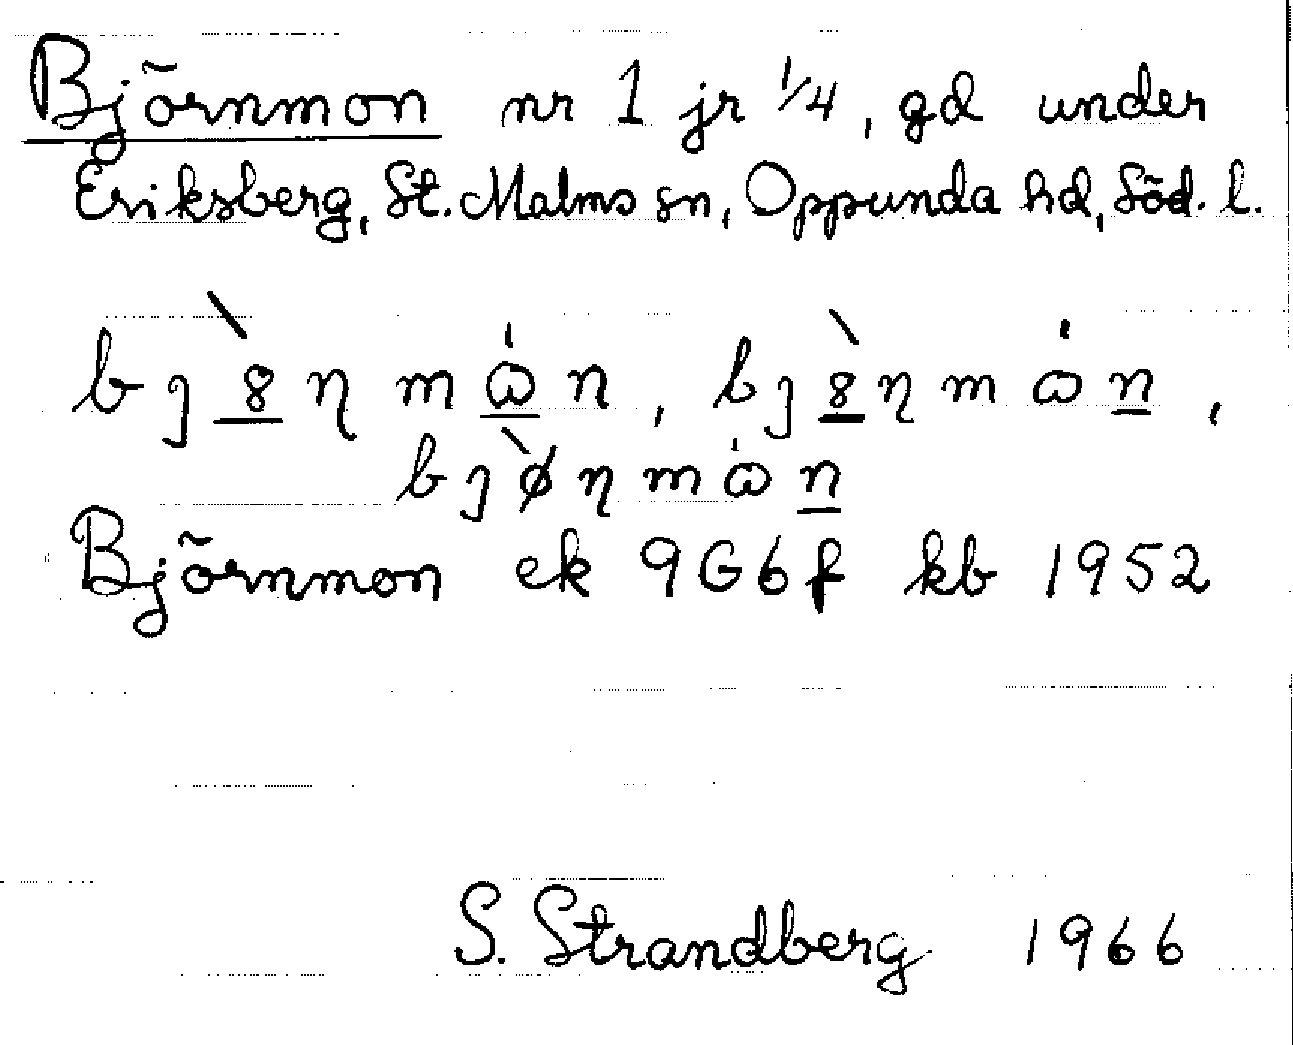 Björnmon nr 1 jr 1/4, gd under
Eriksberg, St. Malms sn, Oppunda hd, Söd. l.
bj8̀ηmω̇n, bj8̀ηmω̇n,
bjø̀ηmω̇n
Björnmon ek 9G6f kb 1952
S. Strandberg 1966